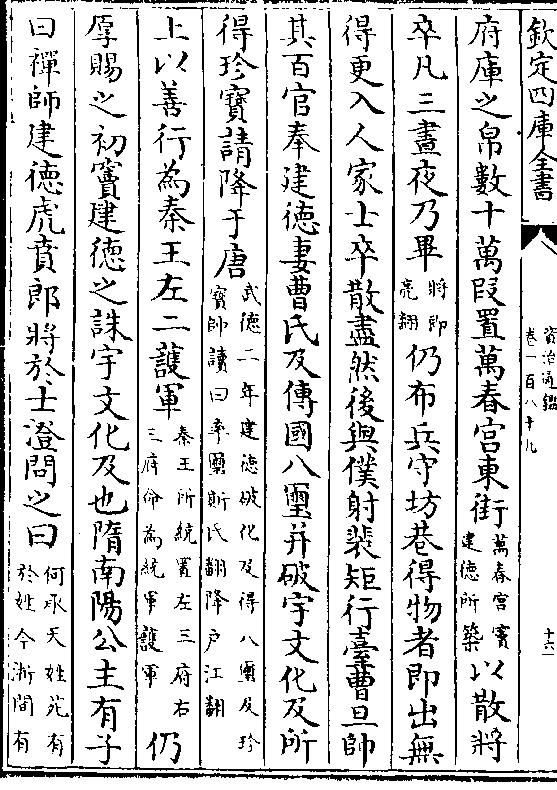 欽定四庫全書
資治通鑑
卷一百八十九
十六
府庫之帛數十萬段置萬春宫東街萬春宮竇建德所築以散將
卒凡三晝夜乃畢將即亮翻仍布兵守坊巷得物者即出無
得更入人家士卒散盡然後與僕射裴矩行臺曹旦帥
其百官奉建德妻曹氏及傳國八璽并破宇文化及所
得珍寶請降于唐武德二年建德破化及得八璽及珍寶帥讀曰率璽斯氏翻降户江翻
上以善行為秦王左二護軍秦王所統置左三府右三府命為統軍護軍仍
厚賜之初竇建德之誅宇文化及也隋南陽公主有子
曰禪師建德虎賁郎將於士澄問之曰何承天姓苑有於姓今淅間有